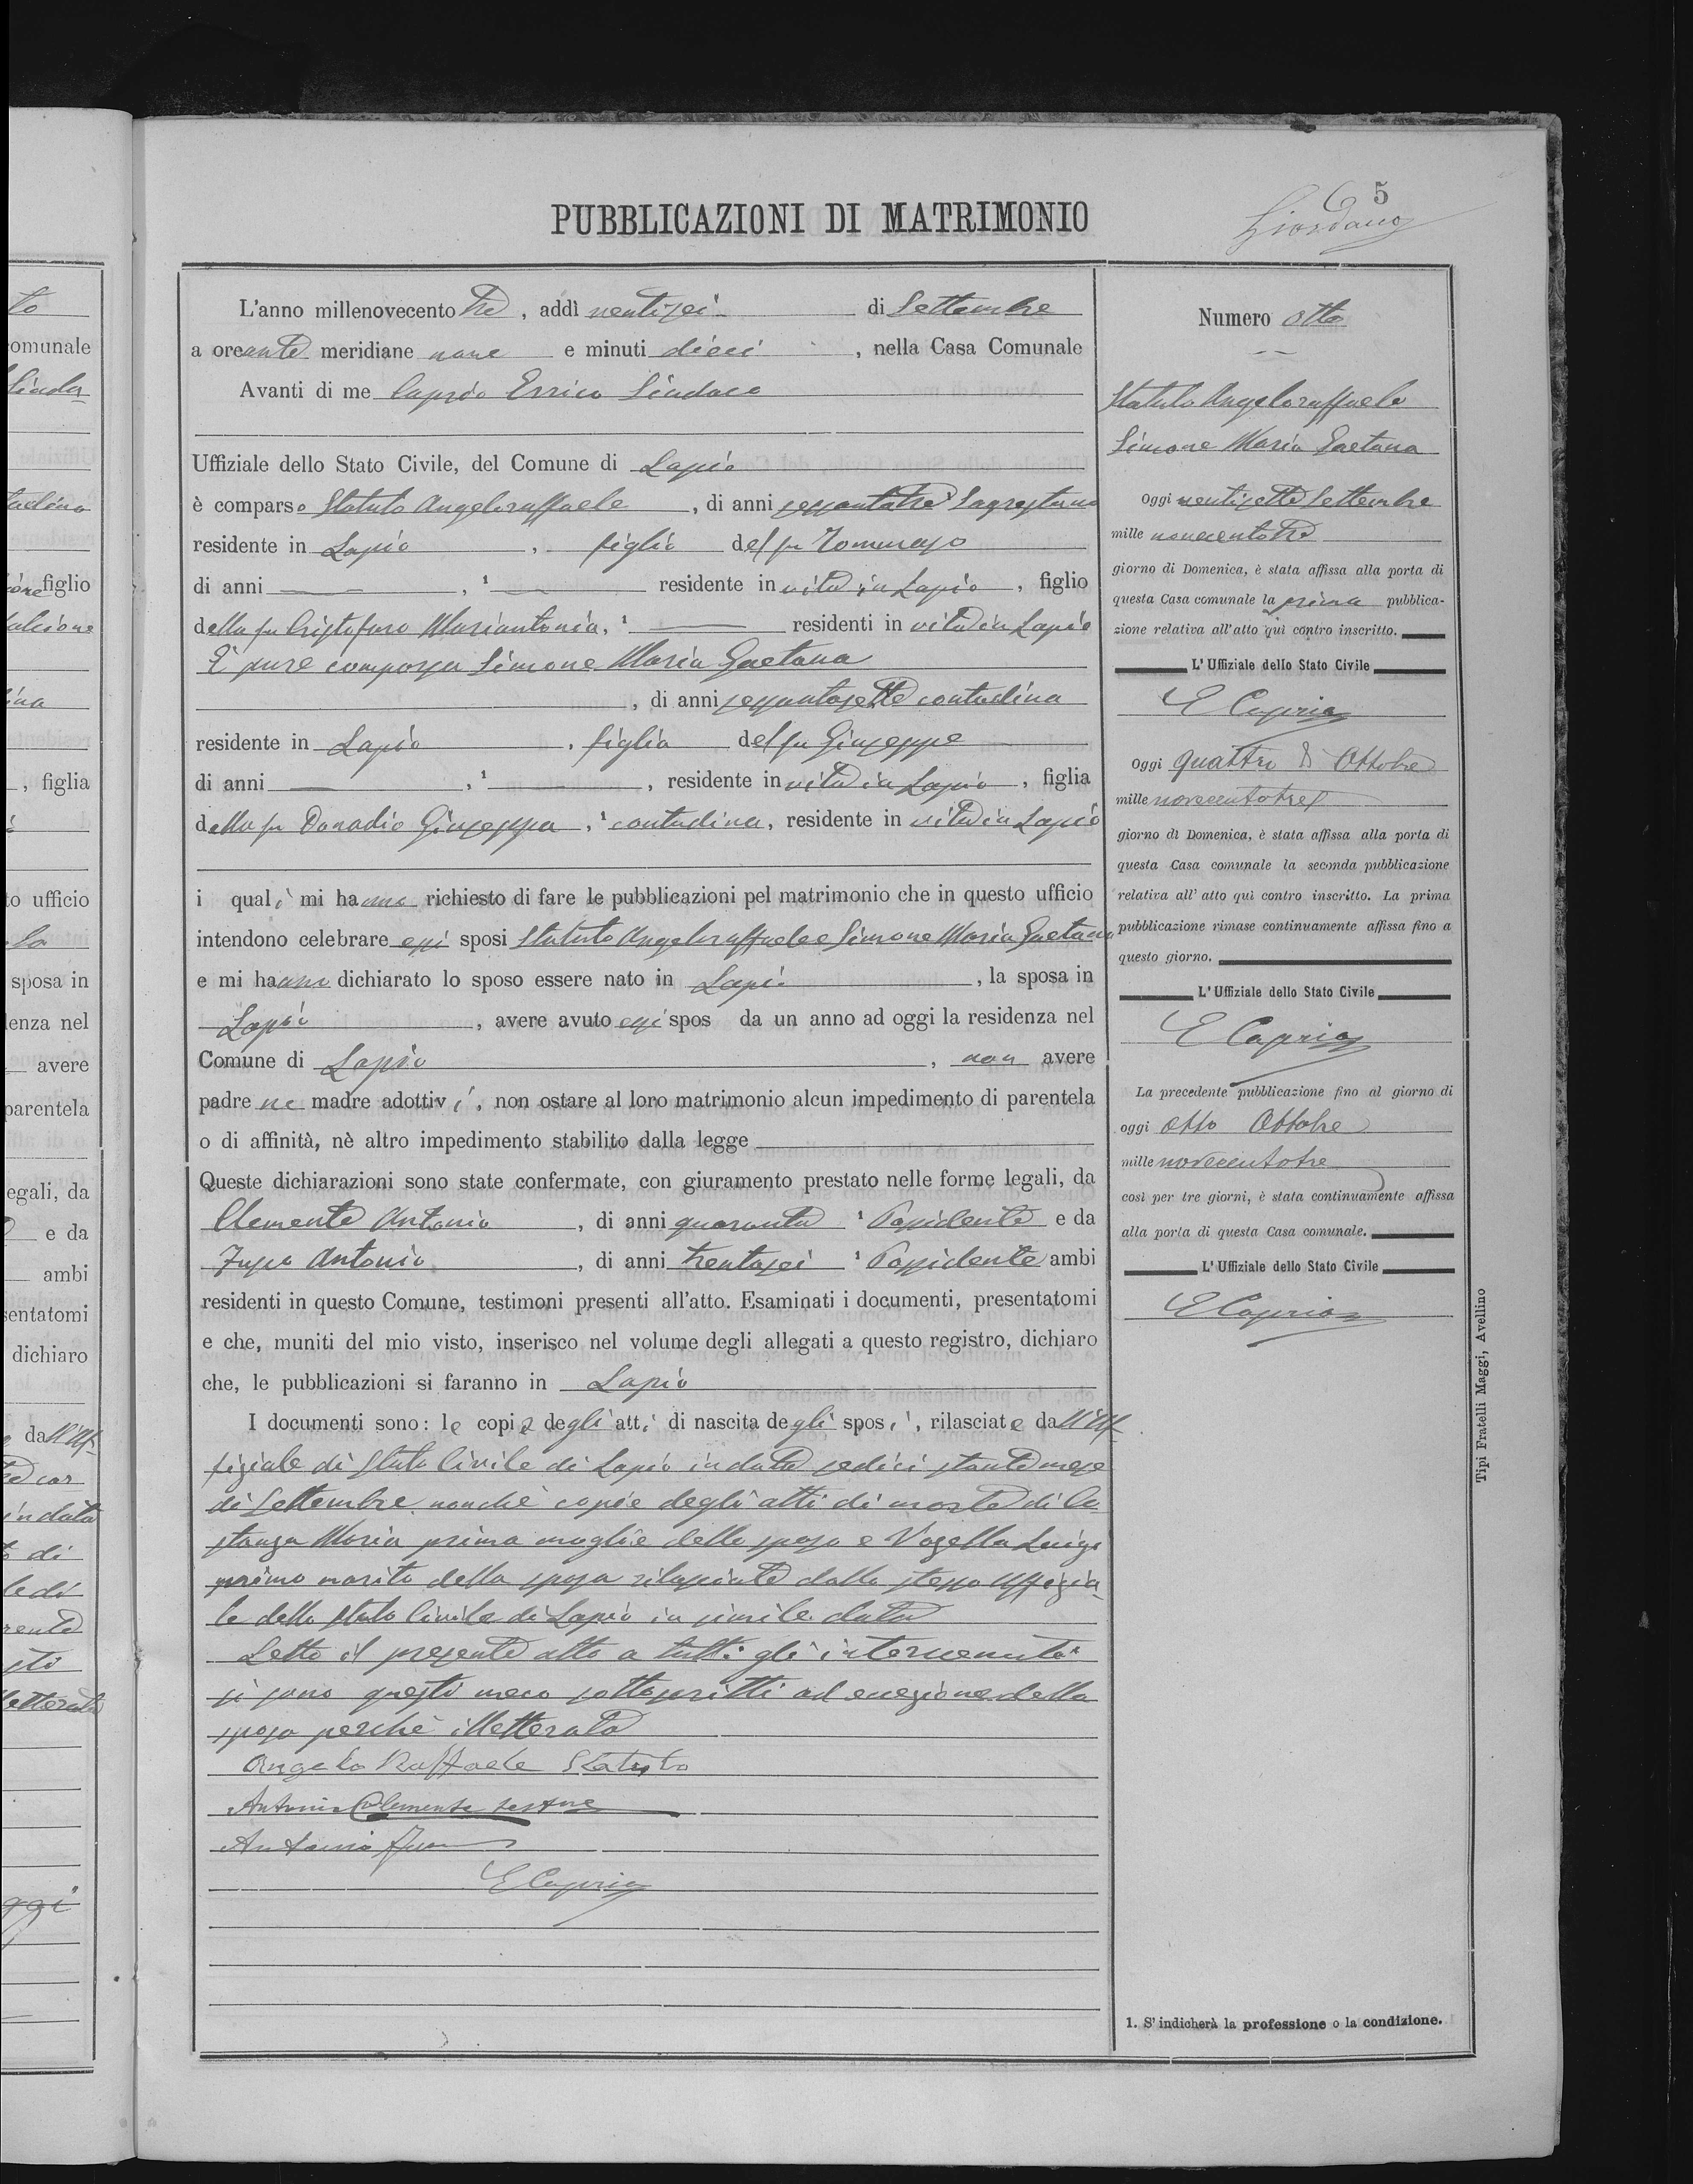 5
Giordano
PUBBLICAZIONI DI MATRIMONIO
L'anno millenovecento tre, addì ventisei di Settembre
a ore ante meridiane nove e minuti dieci, nella Casa Comunale
Avanti di me Caprio Errico Sindaco
Uffiziale dello Stato Civile, del Comune di Lapio
è comparso Statuto Angeloraffaele, di anni sessantatre Sagrestano
residente in Lapio, figlio del fu Tommaso
di anni — , ¹ — residente in vita in Lapio, figlio
della fu Cristofaro Mariantonia, ¹ — residenti in vita in Lapio
È pure comparsa Simone Maria Gaetana
, di anni sessantasette contadina
residente in Lapio, figlia del fu Giuseppe
di anni — , ¹ — , residente in vita in Lapio, figlia
della fu Donadio Giuseppa, ¹ contadina, residente in vita in Lapio
i quali mi hanno richiesto di fare le pubblicazioni pel matrimonio che in questo ufficio
intendono celebrare essi sposi Statuto Angeloraffaele e Simone Maria Gaetana
e mi hanno dichiarato lo sposo essere nato in Lapio, la sposa in
Lapio, avere avuto essi spos da un anno ad oggi la residenza nel
Comune di Lapio, non avere
padre ne madre adottivi, non ostare al loro matrimonio alcun impedimento di parentela
o di affinità, nè altro impedimento stabilito dalla legge
Queste dichiarazioni sono state confermate, con giuramento prestato nelle forme legali, da
Clemente Antonio, di anni quaranta ¹ Possidente e da
Antonio, di anni trentasei ¹ Possidente ambi
residenti in questo Comune, testimoni presenti all'atto. Esaminati i documenti, presentatomi
e che, muniti del mio visto, inserisco nel volume degli allegati a questo registro, dichiaro
che, le pubblicazioni si faranno in Lapio
I documenti sono: le copie degli atti di nascita degli sposi, rilasciate dall'Uf
fiziale di Stato Civile di Lapio in data sedici stante mese
di Settembre nonchè copie degli atti di morte di Co
stanza Maria prima moglie dello sposo e Vozella Luigi
primo marito della sposa rilasciate dallo stesso Uffizia
le dello Stato Civile di Lapio in simile data
Letto il presente atto a tutti gli intervenuti
si sono questi meco sottoscritti ad eccezione della
sposa perchè illetterata
Angelo Raffaele Statuto
Antonio Clemente testone
Antonio
E Caprio
Numero otto
Statuto Angeloraffaele
Simone Maria Gaetana
Oggi ventisette Settembre
mille novecentotre
giorno di Domenica, è stata affissa alla porta di
questa Casa comunale la prima pubblica-
zione relativa all'atto quì contro inscritto.
L'Uffiziale dello Stato Civile
E Caprio
Oggi quattro di Ottobre
mille novecentotre
giorno di Domenica, è stata affissa alla porta di
questa Casa comunale la seconda pubblicazione
relativa all'atto quì contro inscritto. La prima
pubblicazione rimase continuamente affissa fino a
questo giorno.
L'Uffiziale dello Stato Civile
E Caprio
La precedente pubblicazione fino al giorno di
oggi otto Ottobre
mille novecentotre
così per tre giorni, è stata continuamente affissa
alla porta di questa Casa comunale.
L'Uffiziale dello Stato Civile
E Caprio
1. S'indicherà la professione o la condizione.
Tipi Fratelli Maggi, Avellino
to
comunale
Sinda
figlio
, figlia
to ufficio
sposa in
denza nel
avere
parentela
egali, da
e da
ambi
sentatomi
dichiaro
dall'Uf
in data
di